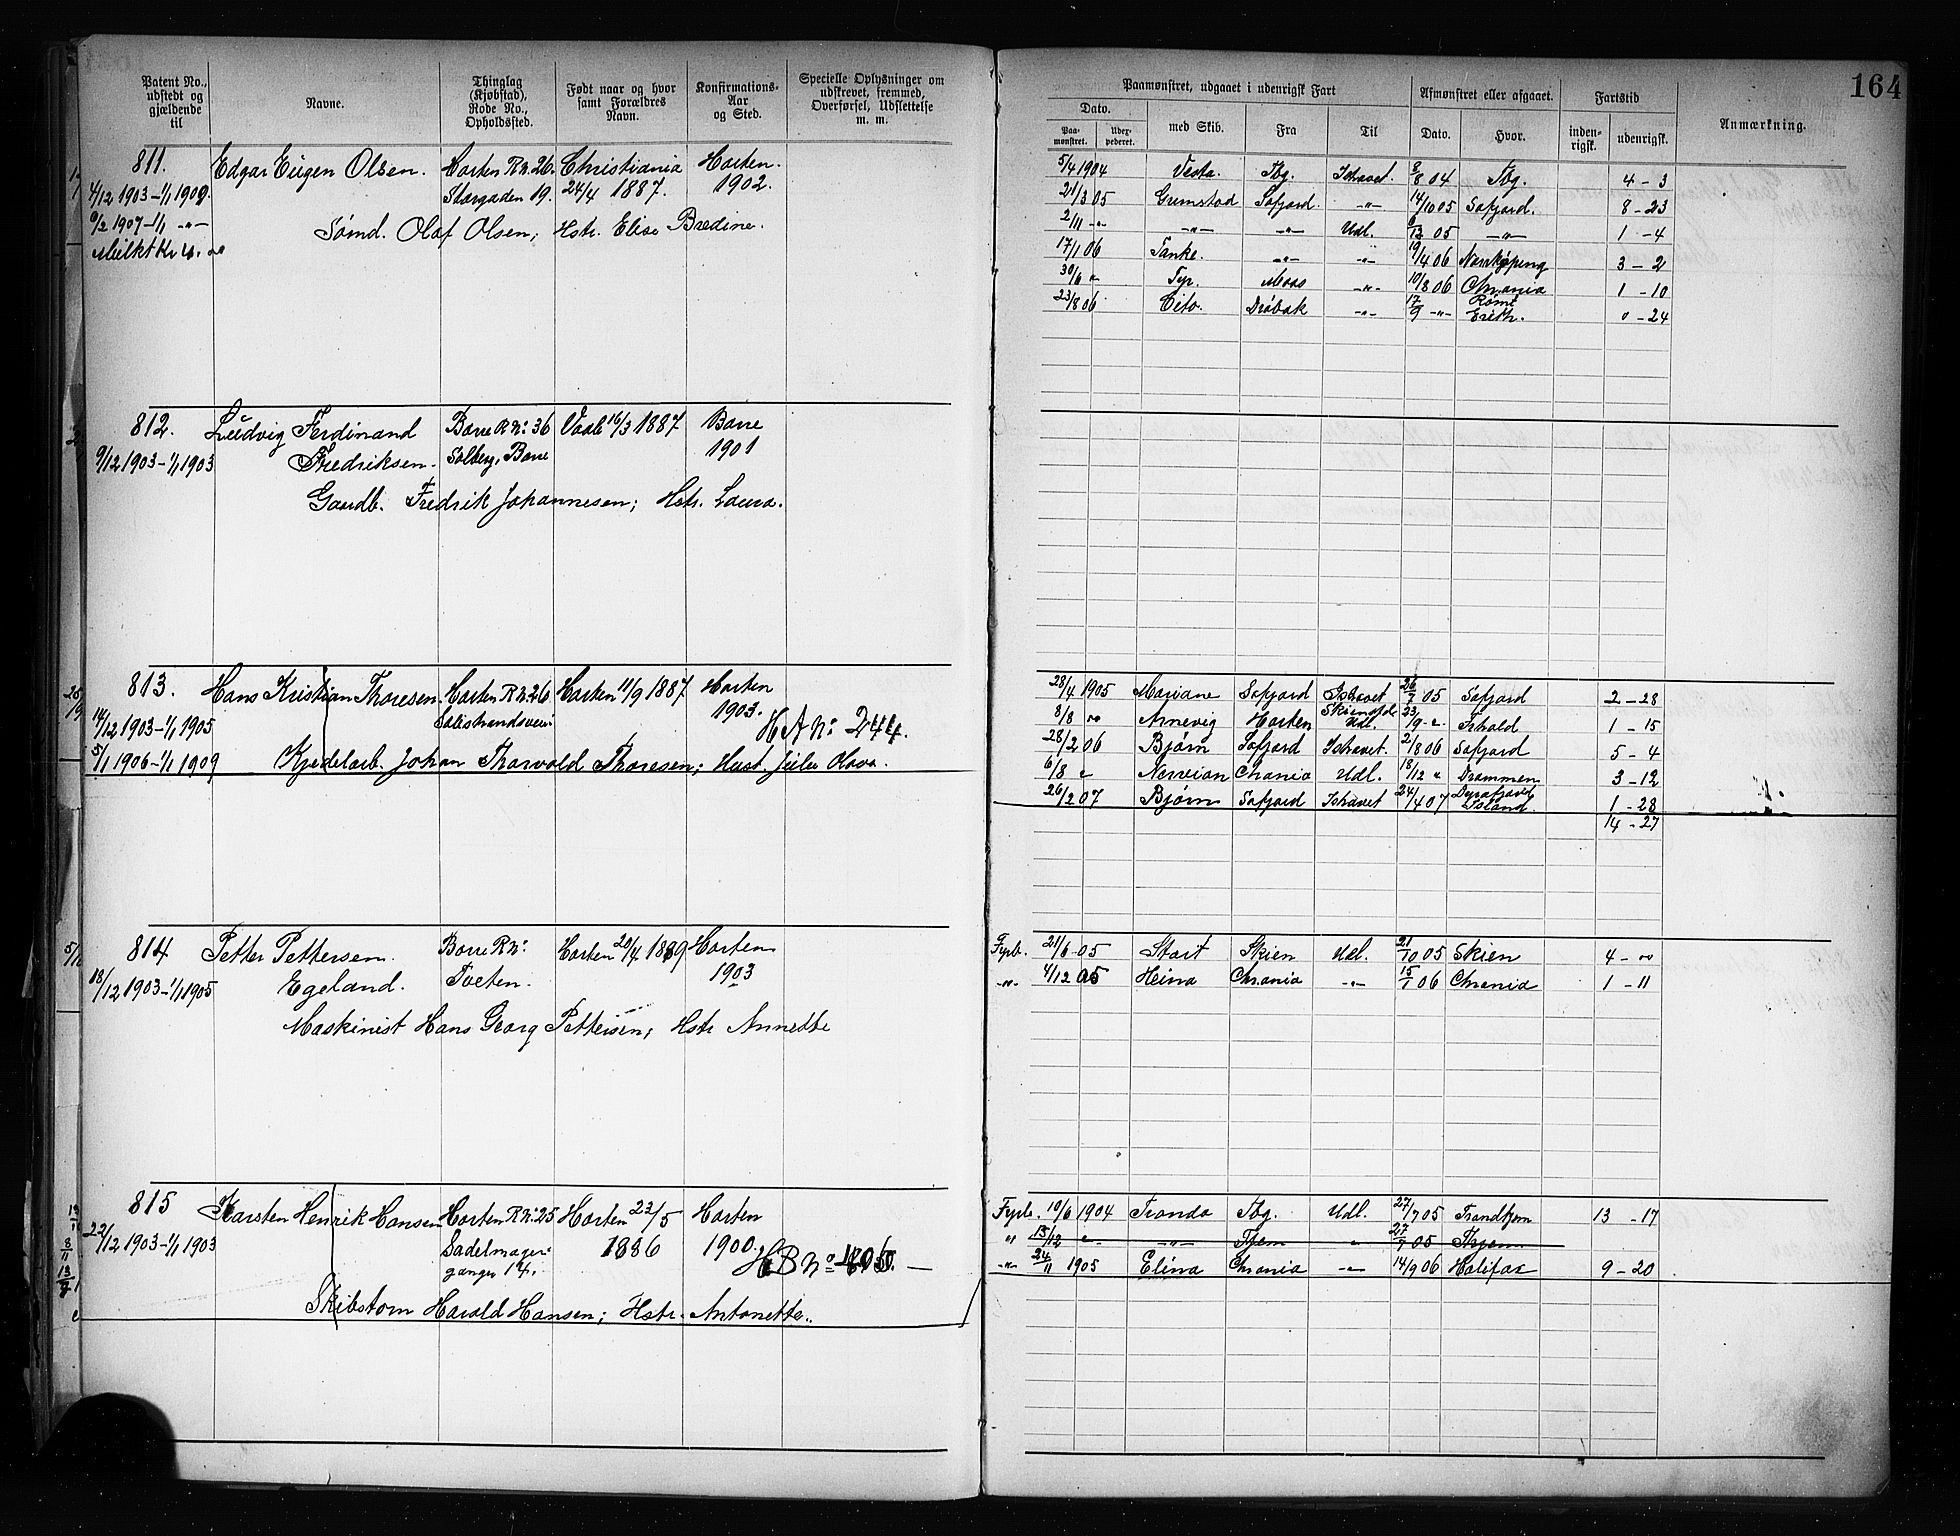 Patent No., udstedt og gjældende til
Navne.
Thinglag (Kjøbstad), Rode No., Opholdssted.
Født naar og hvor samt Forældres Navn.
Konfirmations-Aar og Sted.
Specielle Oplysninger om udskrevet, fremmed, Overførsel, Udslettelse m. m.
811. Edgar Eugen Olsen. Horten R№ 26. Christiania Horten.
4/12 1903 – 1/1 1909. Storgaden 19. 24/4 1887. 1902.
9/2 1907 – 1/1 -„- Sømd. Olaf Olsen; Hstr. Elise Bredine.
812. Ludvig Ferdinand Borre R№: 36 Vaale 16/3 1887 Borre
9/12 1903 – 1/1 1903 Fredriksen. Solberg, Borre 1901
Gaardb. Fredrik Johannesen; Hstr. Laura.
813. Hans Kristian Thoresen. Horten R№ 26 Horten 11/9 1887 Horten
14/12 1903 – 1/1 1905 1903. H A №: 244.
5/1 1906 – 1/1 1909 Kjedelarb. Johan Thorvald Thoresen; Hust. Julie Olava.
814 Petter Pettersen. Borre R№: Horten 20/4 1889 Horten
18/12 1903 – 1/1 1905 Egeland. Toeten. 1903
Maskinist Hans Georg Pettersen; Hstr Annette
815 Karsten Henrik Hansen Horten R№: 25 Horten 23/5 Horten
22/12 1903 – 1/1 1903 Sadelmager- 1886 1900. H B №
gangen 14.
Skibstøm Harald Hansen; Hstr. Antonette.
164
Paamønstret, udgaaet i udenrigsk Fart
Afmønstret eller afgaaet.
Fartstid
Anmærkning.
Dato.
Paa-mønstret.
med Skib. Fra Til Dato. Hvor. inden-rigsk. udenrigsk.
5/4 1904 Vesta. Tbg. Ishavet. 8/8 04 Tbg. 4 – 3
21/3 05 Grimstad Søfjord. -„- 14/10 05 Søfjord. 8 – 23
2/11 -„- -„- -„- Udl. 05 -„- 1 – 4
17/1 06 Tanke. -„- -„- 19/4 06 Norrkøping 3 – 2
30/6 „ Tyr. Moss -„- 10/8 06 Chrania 1 – 10
23/8 06 Cito. Drøbak -„- 17/9 -„- Erith. 0 – 24
28/4 1905 Mariane Søfjord Ishavet 26/7 05 Søfjord 2 – 28
8/8 „ Arnevig Horten Udl. 23/9 „ 1 – 15
28/2 06 Bjørn Søfjord Ishavet. 2/8 06 Søfjord 5 – 4
6/8 „ Chrania Udl. 18/12 „ Drammen 3 – 12
26/2 07 Bjørn Søfjord Ishavet 24/4 07 Dyrafjord Island. 1 – 28
14 – 27
Fyrb. 21/6 05 Start Skien Udl. 21/10 05 Skien 4 – „
-„- 4/12 05 Heina Chrania -„- 15/1 06 Chrania 1 – 11
Fyrb. 10/6 1904 Tronda Tbg. Udl. 27/7 05 Trondhjem 13 – 17
„ 15/12 „ -„- Thjem „ 27/7 05 Thjem
-„- 24/11 1905 Elina Chrania -„- 14/9 06 Halifax 9 – 20